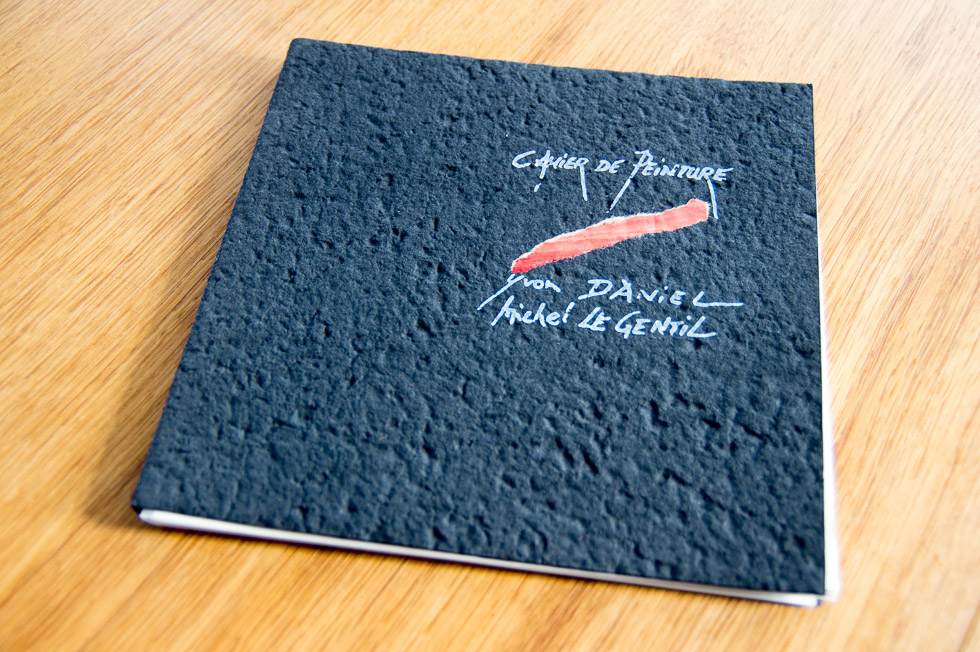 CAHIER DE PEINTURE
Yvon DANiEL
Michel LE GENTiL